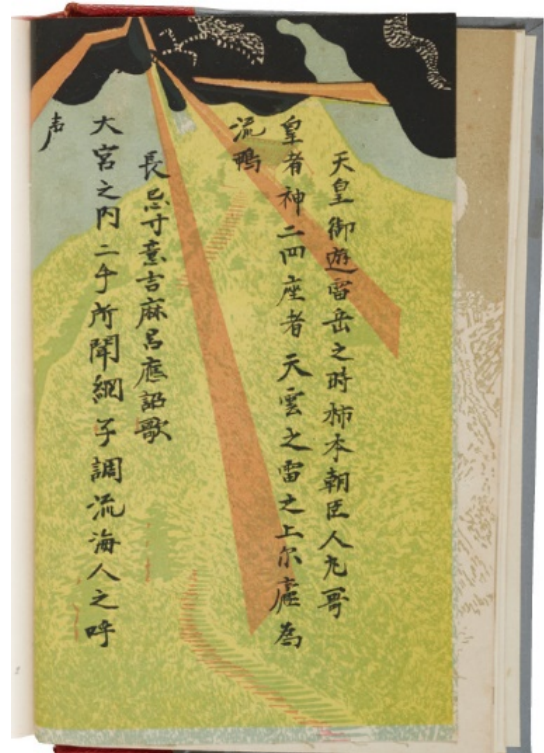 天皇御遊雷岳之時柿本朝臣人丸哥
皇者神二四座者天雲之雷之上尓廬為
流鴨
長忌寸意吉麻呂應詔歌
大宮之内二手所聞網子調流海人之呼
声